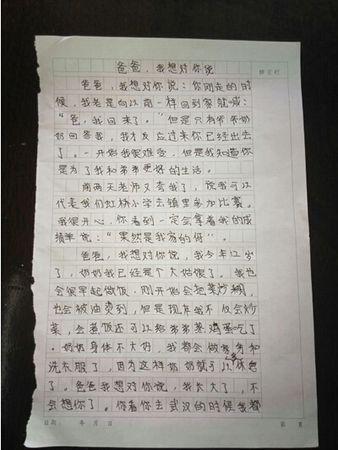 爸爸，我想对你说
爸爸，我想对你说：你刚走的时
候，我老是向以前一样回到家就喊：
“爸，我回来了。”但是只有爷爷奶
奶回答我，我才反应过来你已经出去
了。一开始我很难受，但是我知道你
是为了我和弟弟更好的生活。
前两天老师又夸我了，说我可以
代表我们虹桥小学去镇里参加比赛。
我很开心，你看到一定会拿着我的成
绩单说：“果然是我家的
爸爸，我想对你说，我今年12岁
了，奶奶我已经是个大姑娘了。我也
会很早起做饭，刚开始会把菜炒糊，
也会被油烫到，但是现在我不仅会炒
菜，会煮饭还可以给弟弟蒸鸡蛋吃了
。奶奶身体不大好，我都会做家务和
洗衣服了，因为这样奶奶就可以休息
了。爸爸我想对你说，我长大了，不
会想你了。你看你去武汉的时候我都
日期： 年 月 日 第 页